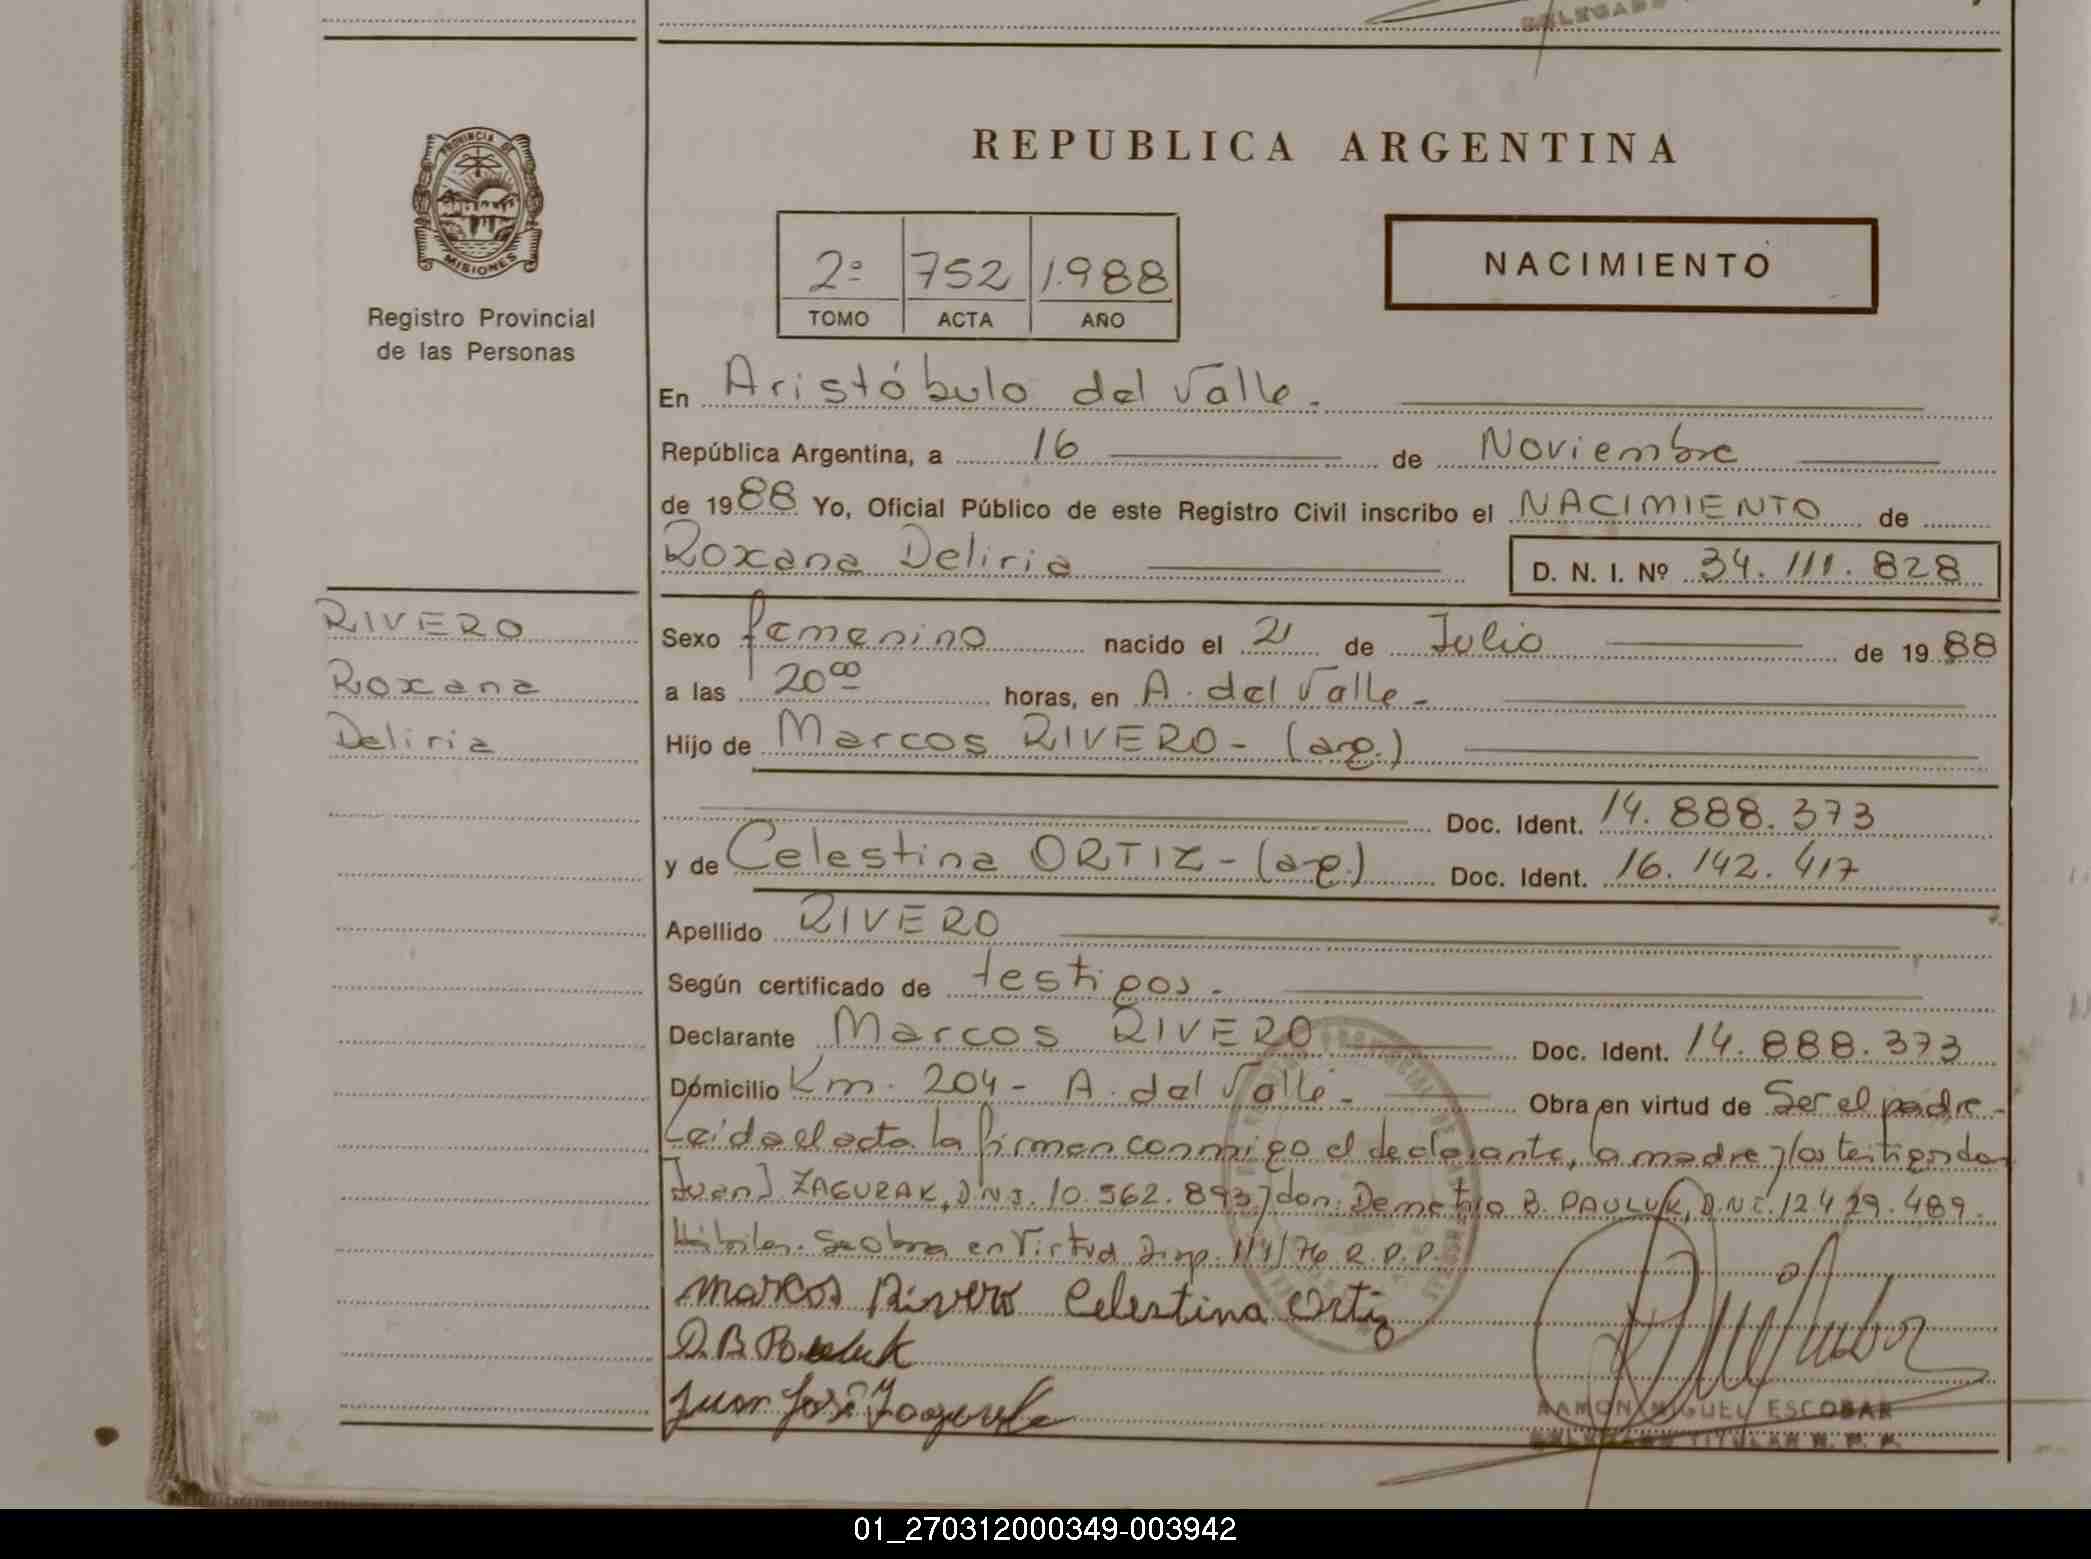 DELEGADO
PROVINCIA DE
MISIONES
Registro Provincial
de las Personas
REPUBLICA ARGENTINA
2º 752 1.988
TOMO ACTA AÑO
NACIMIENTO
En Aristóbulo del Valle.
República Argentina, a 16 de Noviembre
de 1988 Yo, Oficial Público de este Registro Civil inscribo el NACIMIENTO de
Roxana Deliria
D. N. I. Nº 34.111.828
RIVERO
Roxana
Deliria
Sexo femenino nacido el 21 de Julio de 1988
a las 20ºº horas, en A. del Valle -
Hijo de Marcos RIVERO - (arg.)
Doc. Ident. 14.888.373
y de Celestina ORTIZ - (arg.) Doc. Ident. 16.142.417
Apellido RIVERO
Según certificado de testigos.
Declarante Marcos RIVERO Doc. Ident. 14.888.373
Domicilio Km. 204 - A. del Valle - Obra en virtud de Ser el padre -
Leida el acta la firman conmigo el declarante, la madre y los testigos don
Juan J ZAGURAK, D.N.I. 10.562.893 y don Demetrio B. PAULUK, D.N.I. 12.429.489.
Hábiles. Se obra en Virtud Disp. 111/76 R.P.P.
Marcos Rivero Celestina Ortiz
D.B Pauluk
Juan José
RAMON MIGUEL ESCOBAR
DELEGADO TITULAR R. P. P.
01_270312000349-003942